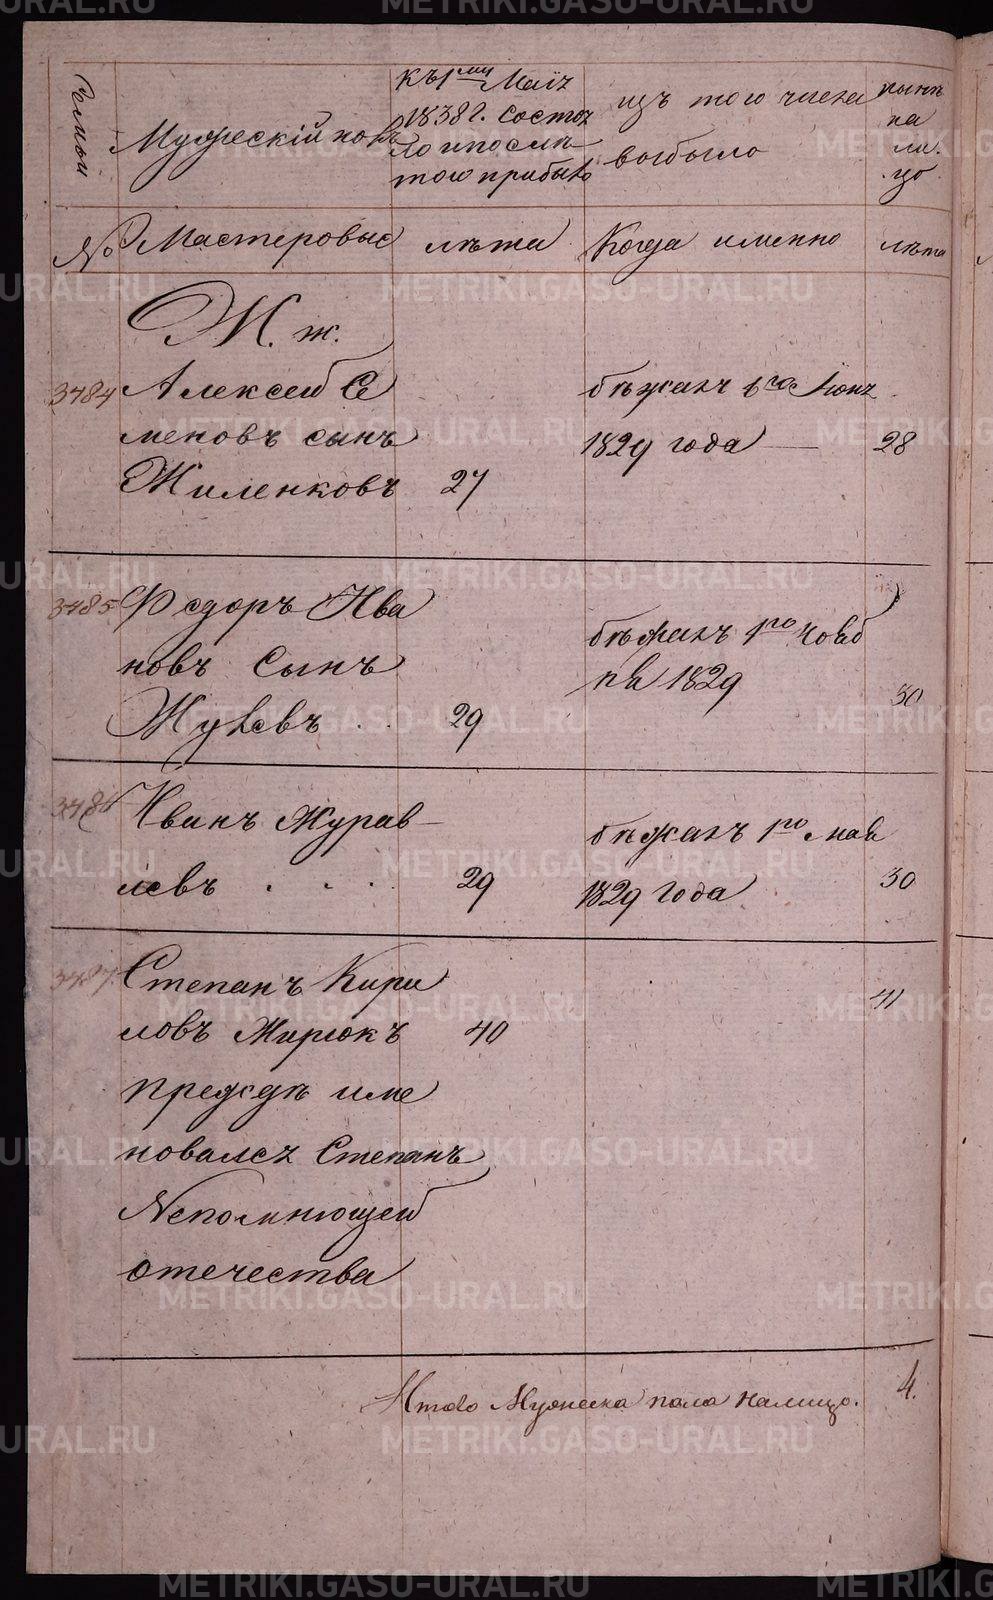 Мужескій полъ
къ 1му Маія
1838 г. состоя
ло и после
того прибыло
изъ того числа
выбыло
ныне
на
ли
цо
№
Мастеровые
лета
Когда именно
лета
Ж. ж.
3484
Алексей Се
меновъ сынъ
Жиленковъ 27
бежалъ 1829 года 28
3485
Федоръ Ива
новъ Сынъ
29
бежалъ 1го Нояб
1829
30
3486
Иванъ Журав
левъ . . . . 29
бежалъ 1го мая
1829 года 30
3487
Степанъ Кири
ловъ 40
41
прежде име
новался Степанъ
Непомнющей
отечества
Итого Мужеска пола налицо. 4.
METRIKI.GASO-URAL.RU